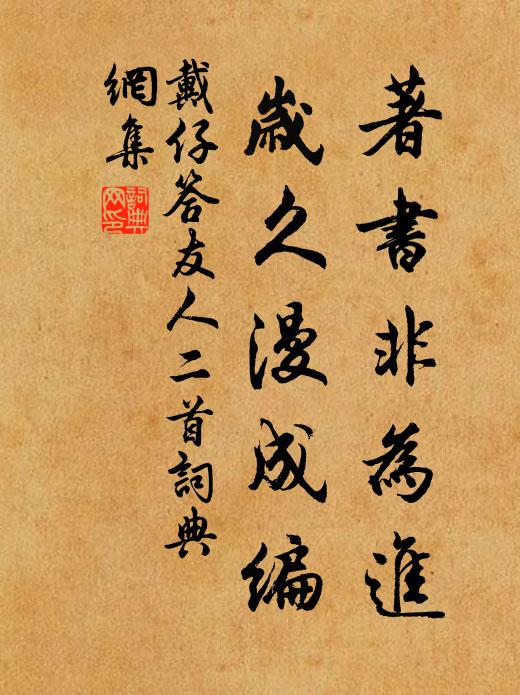 著書非為進
歲久漫成編
戴仔答友人二首詞典
網集
詞典網印